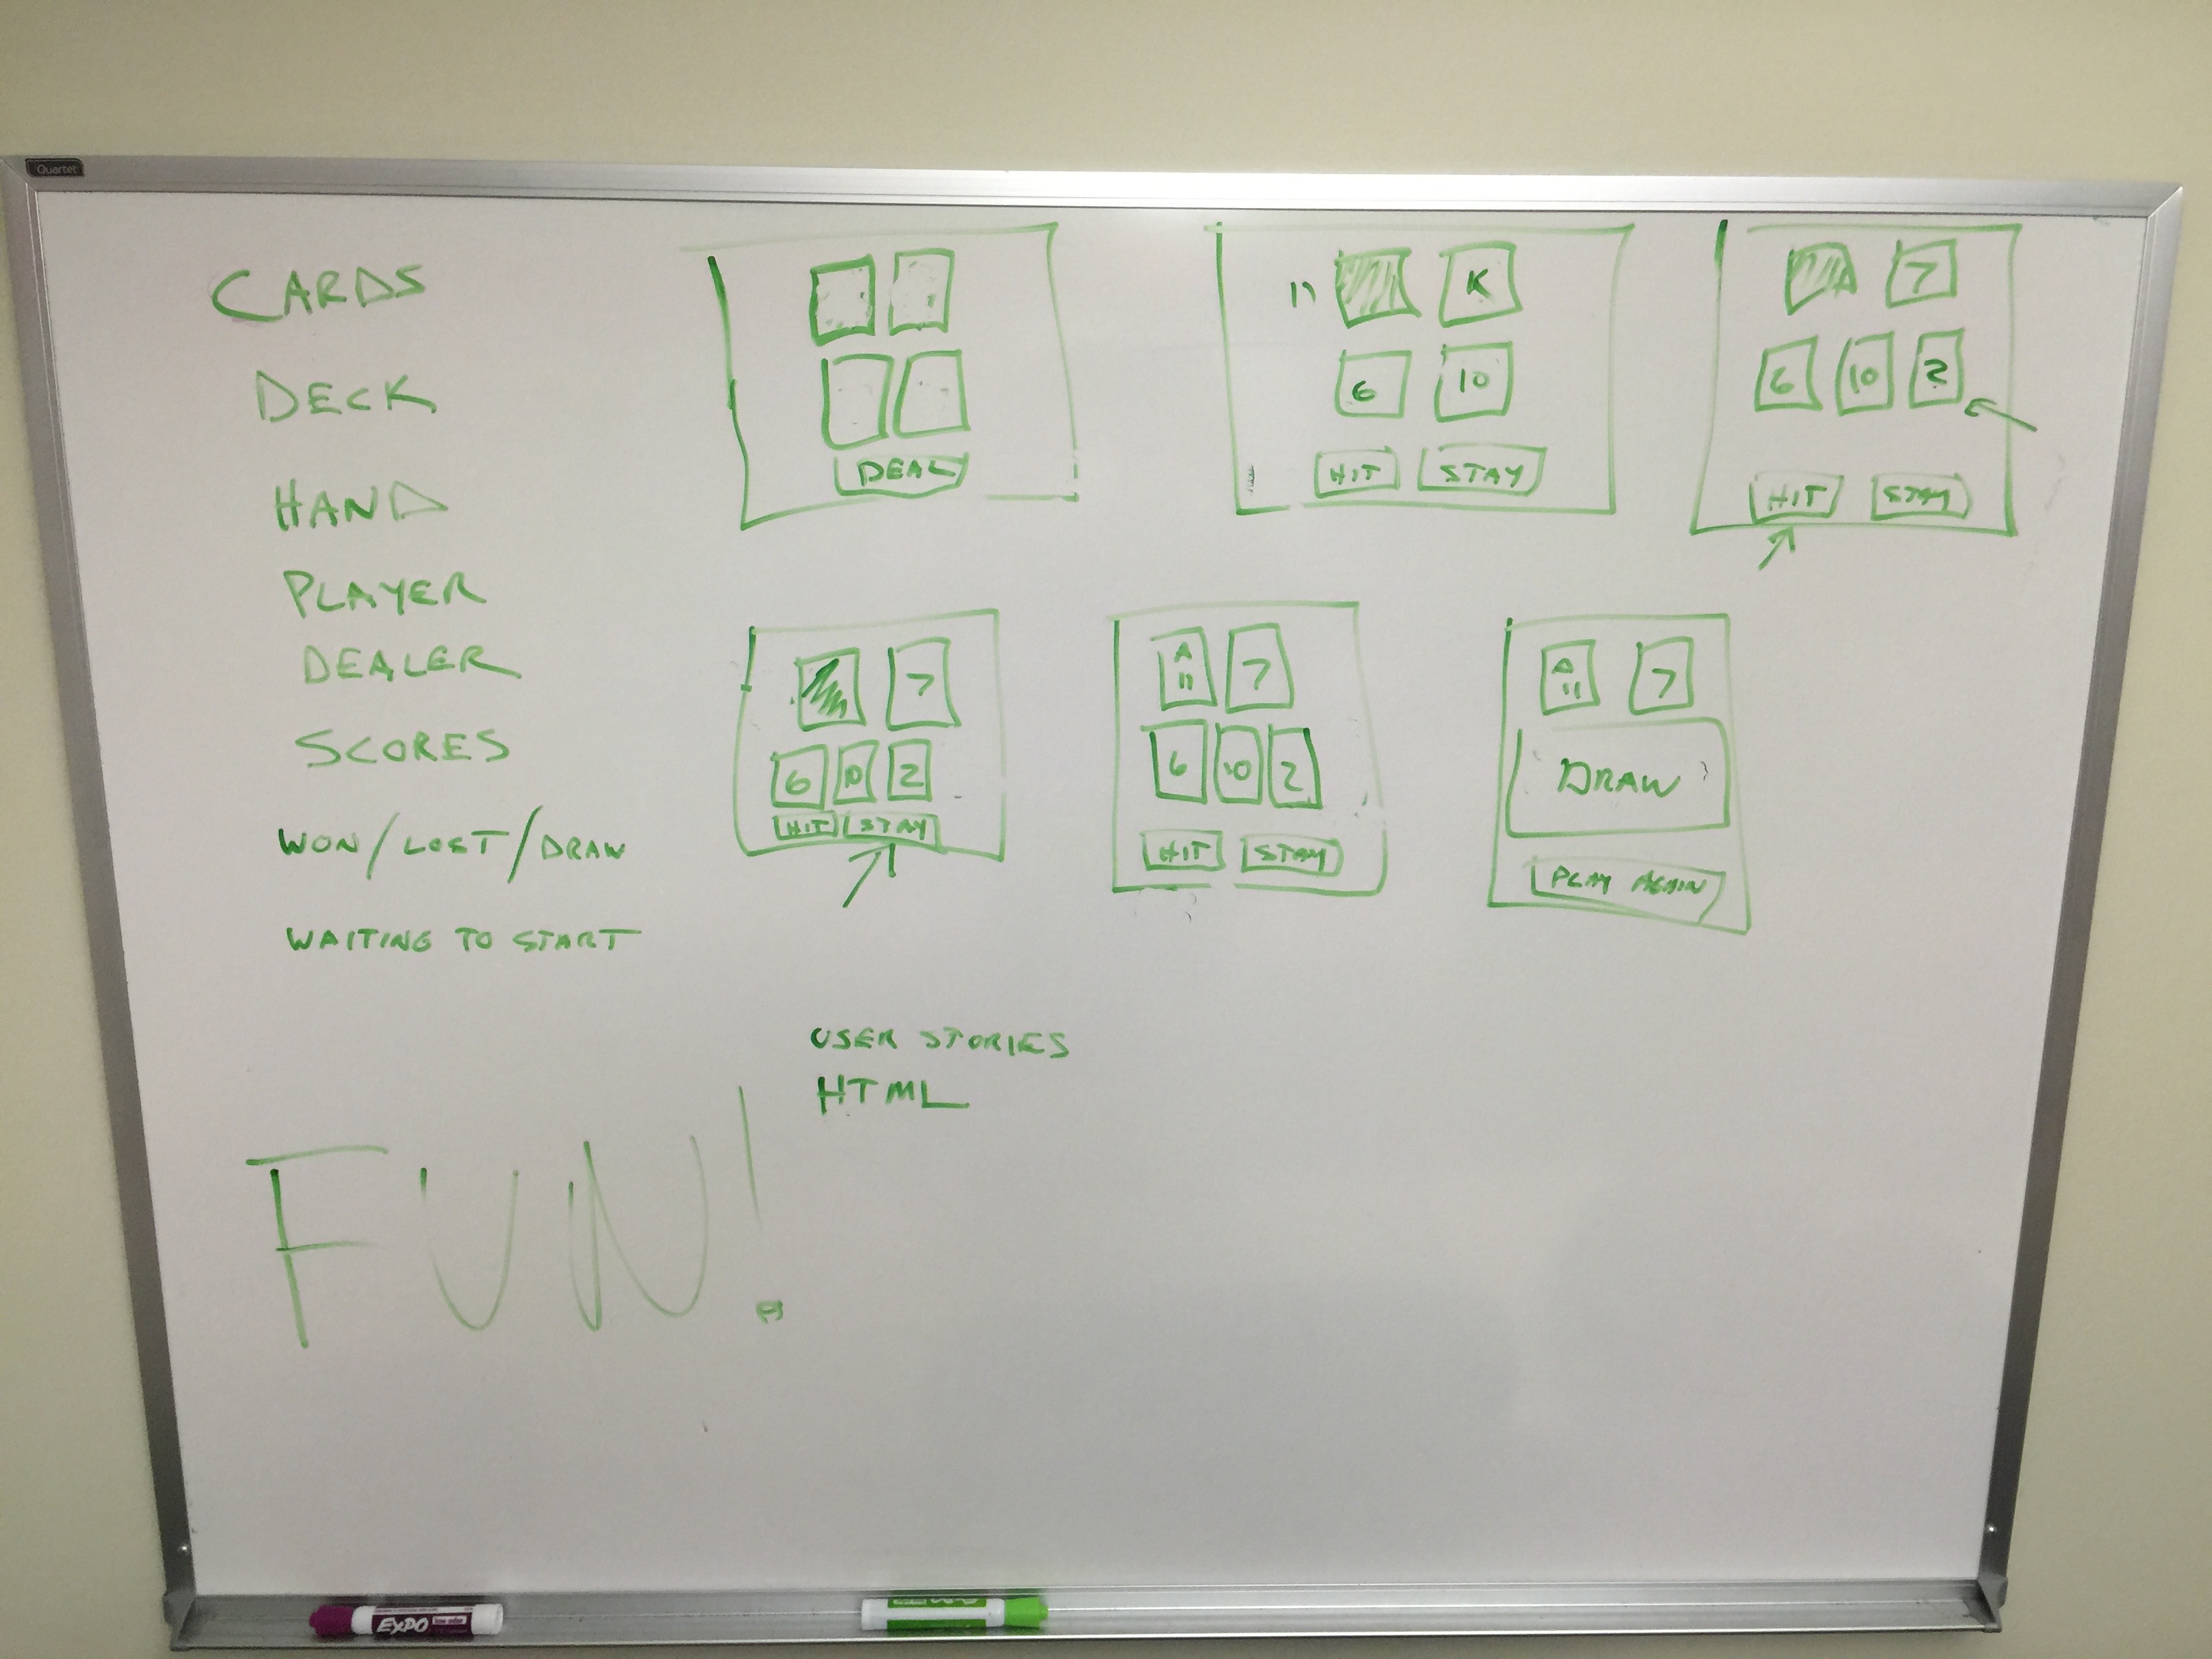 Quartet
CARDS
DECK
HAND
PLAYER
DEALER
SCORES
WON/LOST/DRAW
WAITING TO START
DEAL
K
6 10
HIT STAY
A 7
6 10 2
HIT STAY
7
6 10 2
HIT STAY
A
11 7
6 10 2
HIT STAY
A
11 7
DRAW
PLAY AGAIN
USER STORIES
HTML
FUN!
EXPO